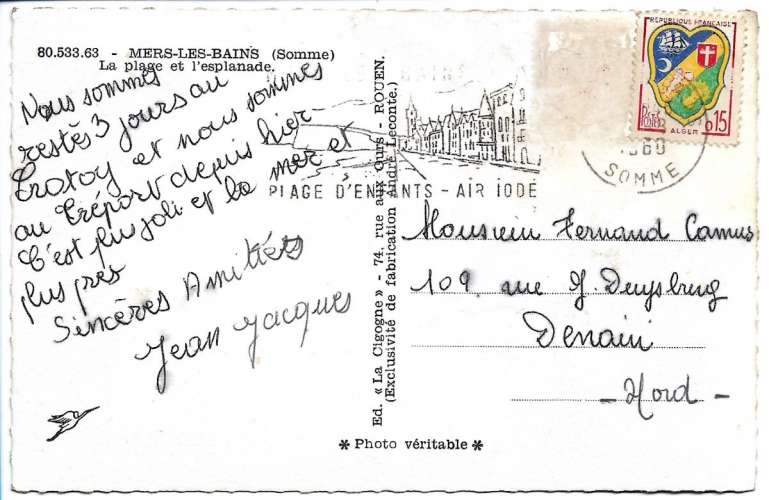 80.533.63 - MERS-LES-BAINS (Somme)
La plage et l'esplanade.
Nous sommes
restés 3 jours au
Crotoy et nous sommes
au Tréport depuis hier.
C'est plus joli et la mer et
plus près
Sincères Amitiés
Jean Jacques
Ed. « La Cigogne » - 74, rue aux Ours - ROUEN.
(Exclusivité de fabrication André Leconte.)
PLAGE D'ENFANTS - AIR IODÉ
REPUBLIQUE FRANÇAISE
POSTES
ALGER
0,15
1960
SOMME
Monsieur Fernand Camus
109 rue
Denain
- Nord -
* Photo véritable *